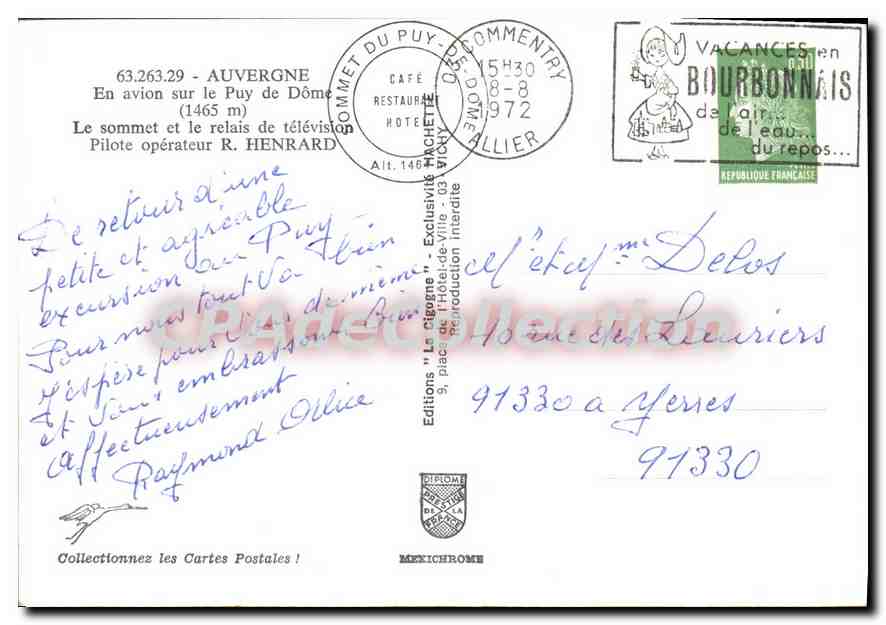 63.263.29 - AUVERGNE
En avion sur le Puy de Dôme
(1465 m)
Le sommet et le relais de télévision
Pilote opérateur R. HENRARD
SOMMET DU PUY-DE-DÔME
CAFÉ
RESTAURANT
HOTEL
Alt. 146
03 COMMENTRY
15H30
8-8
1972
ALLIER
VACANCES en
BOURBONNAIS
de l'air...
de l'eau...
du repos...
0,30
REPUBLIQUE FRANÇAISE
De retour d'une
petite et agréable
excursion au Puy
Pour nous tout va bien
J'espère pour vous de même
et vous embrassons bien
affectueusement
Raymond Alice
Editions "La Cigogne" - Exclusivité HACHETTE
9, place de l'Hôtel-de-Ville - 03 - VICHY
Reproduction interdite
Mr et Mme Delos
40 rue des Lauriers
91330 a Yerres
91330
CPAdeCollection
DIPLOME
PRESTIGE
DE LA
FRANCE
Collectionnez les Cartes Postales !
MEXICHROME